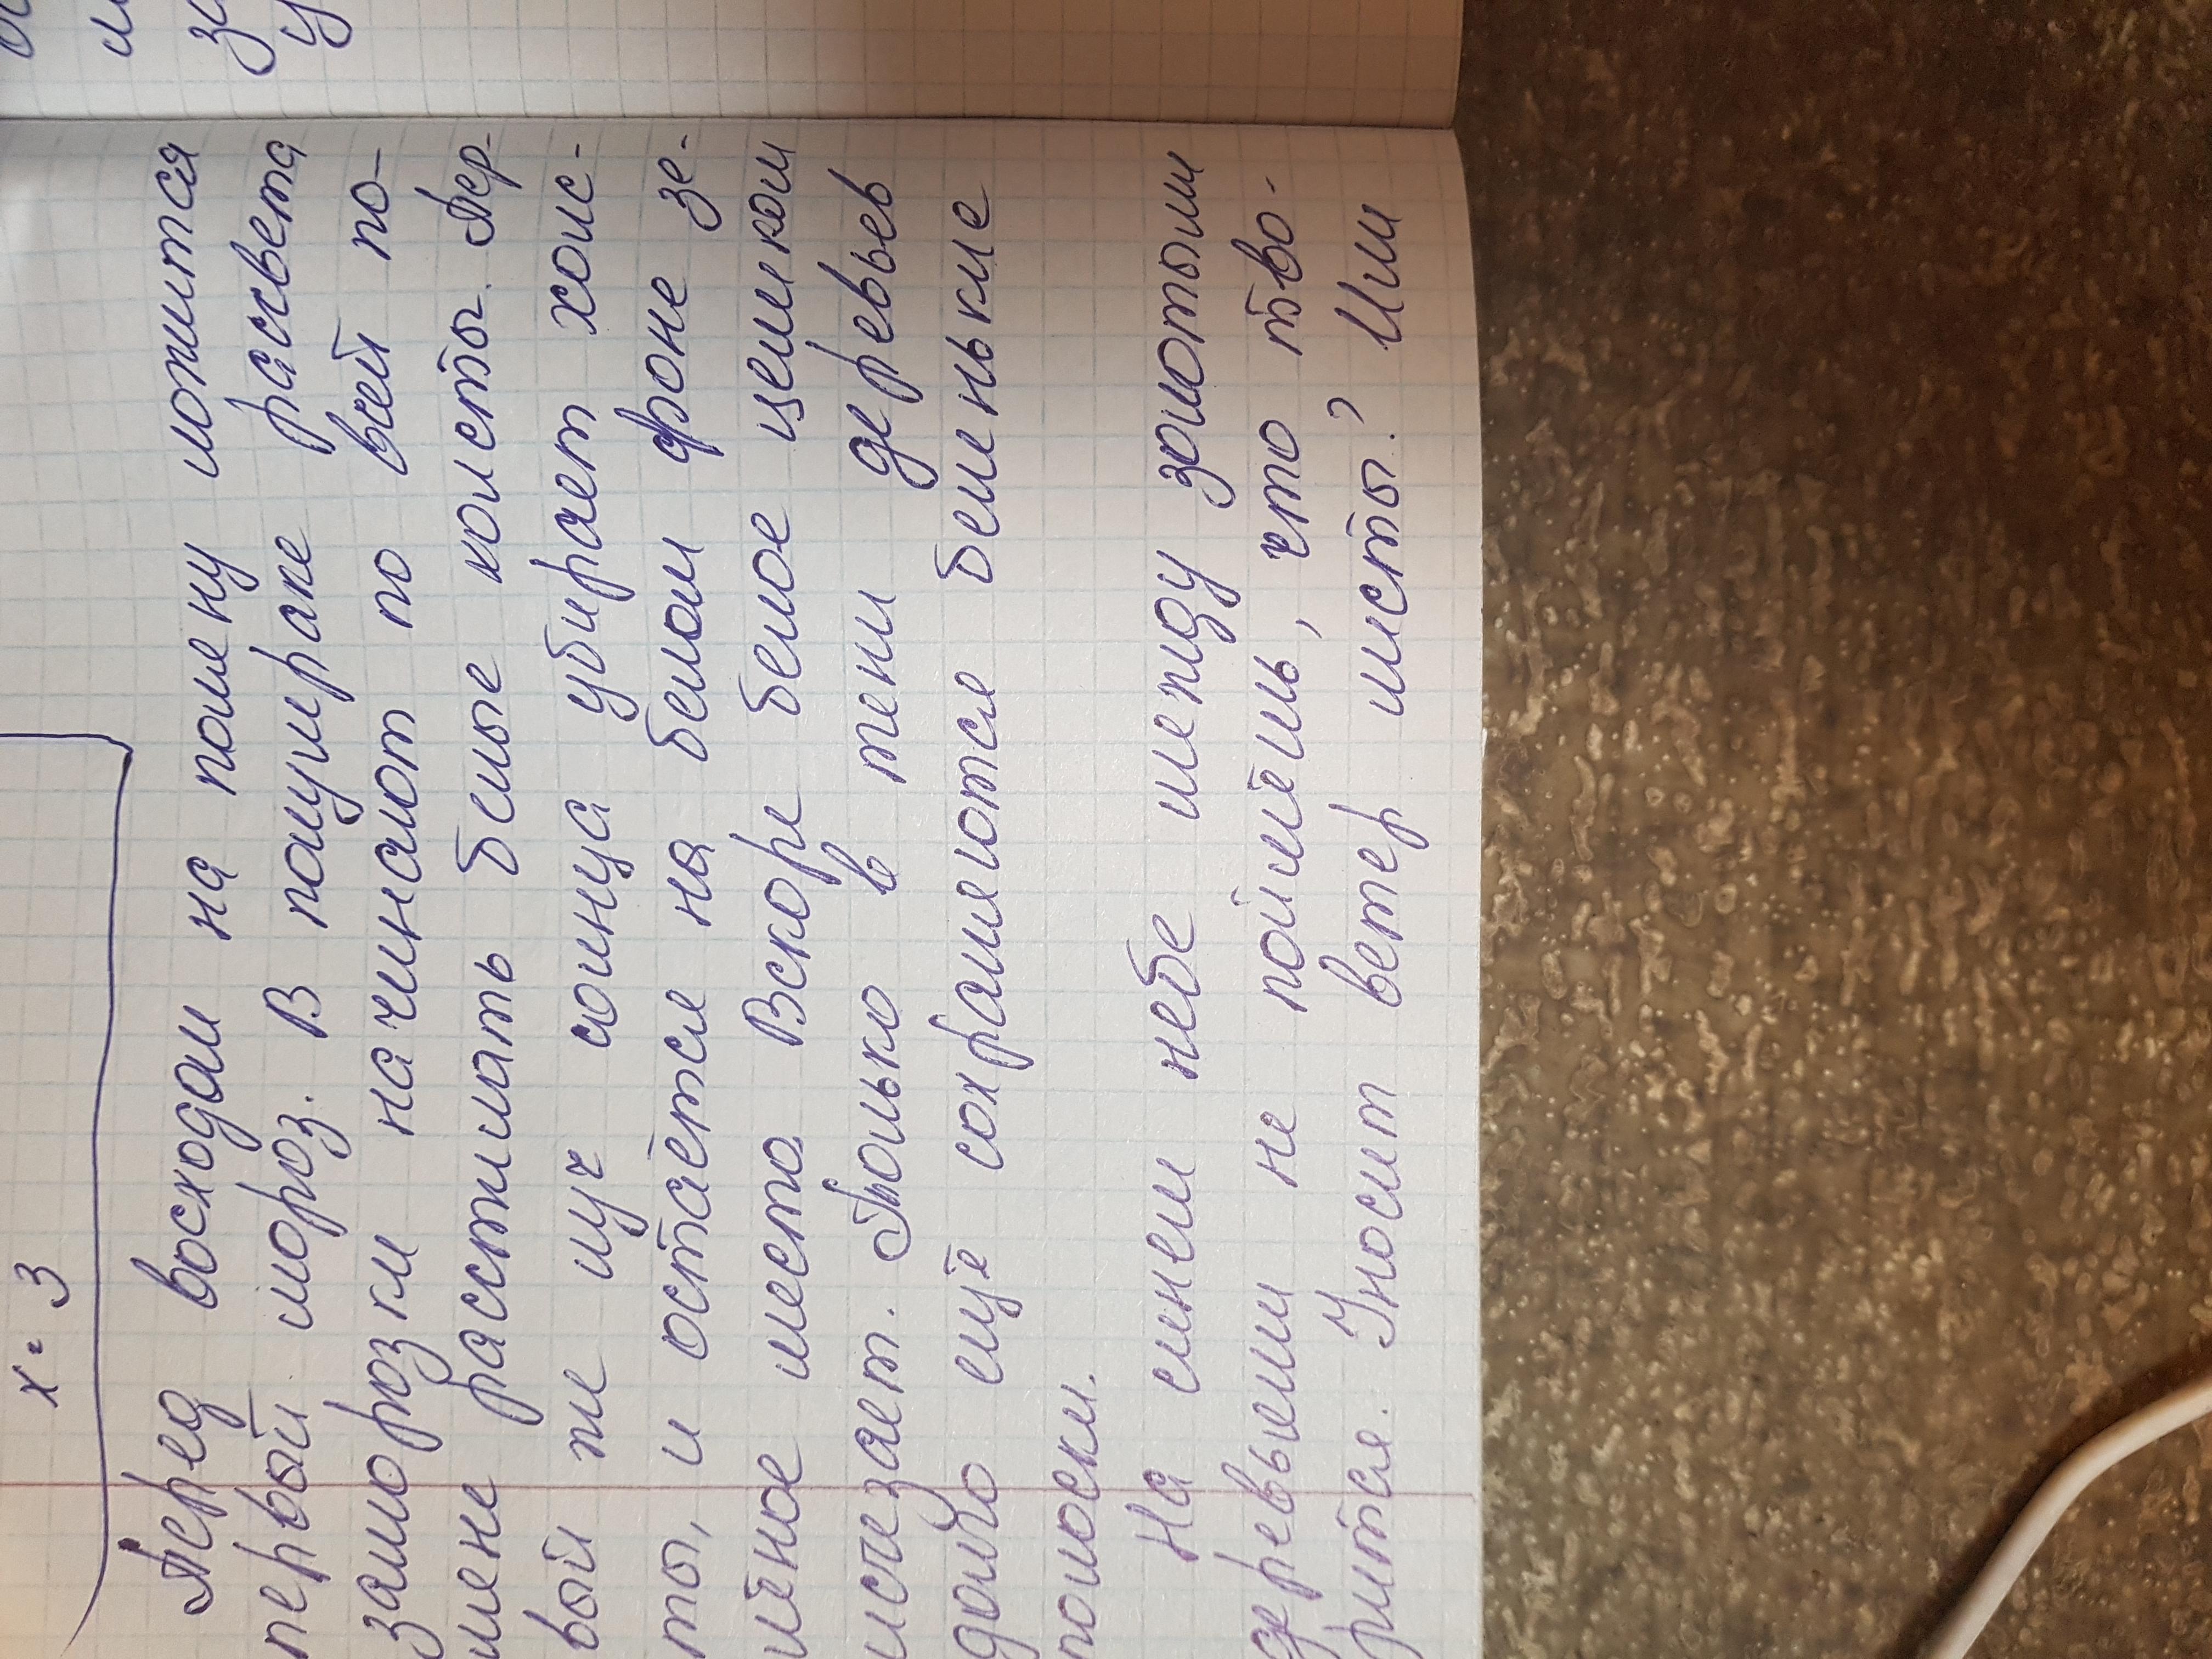 х = 3
Перед восходом на поляну ложится
первый мороз. В полумраке рассвета
заморозки начинают по всей по-
ляне расстилать белые холсты. Пер-
вый же луч солнца убирает холс-
ты, и остаётся на белом фоне зе-
лёное место. Вскоре белое целиком
исчезает. Только в тени деревьев
долго ещё сохраняются беленькие
полоски.
На синем небе между золотыми
деревьями не поймёшь, что тво-
рится. Уносит ветер листы? Или